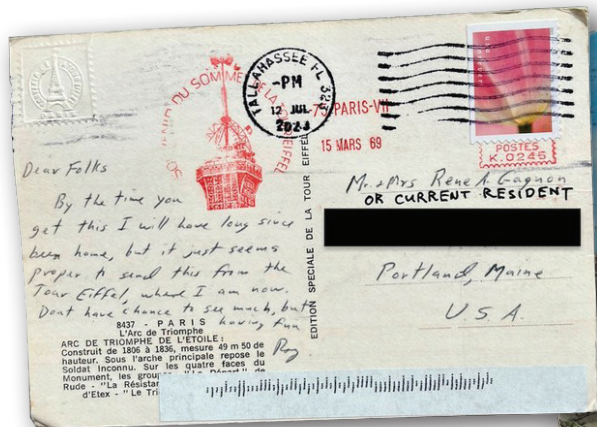 SOUVENIR DU SOMMET DE LA TOUR EIFFEL
TALLAHASSEE FL 323
-PM
12 JUL
75-PARIS-VII
15 MARS 69
POSTES
K.0245
Dear Folks
By the time you
get this I will have long since
been home, but it just seems
proper to send this from the
Tour Eiffel, where I am now.
Dont have chance to see much, but
having fun
Roy
EDITION SPECIALE DE LA TOUR EIFFEL
Mr. & Mrs Rene A. Gagnon
OR CURRENT RESIDENT
Portland, Maine
U.S.A.
8437 - PARIS
L'Arc de Triomphe
ARC DE TRIOMPHE DE L'ETOILE:
Construit de 1806 à 1836, mesure 49 m 50 de
hauteur. Sous l'arche principale repose le
Soldat Inconnu. Sur les quatre faces du
Monument, les
Rude - "La
d'Etex - "Le